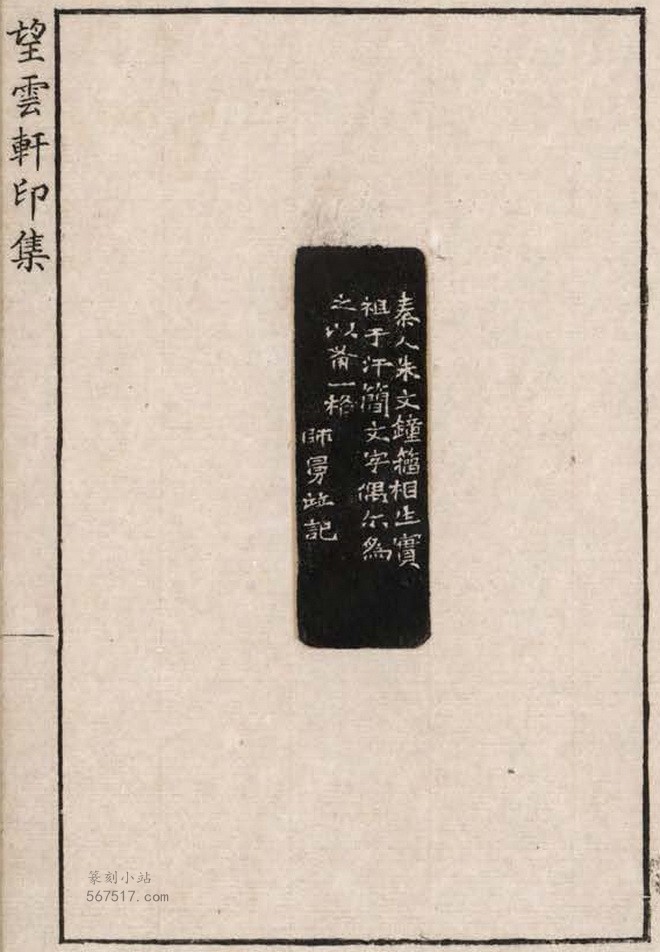 望雲軒印集
秦人朱文鐘籀相生實
祖于汗簡文字偶尔為
之以備一格
師曼並記
篆刻小站
567517.com